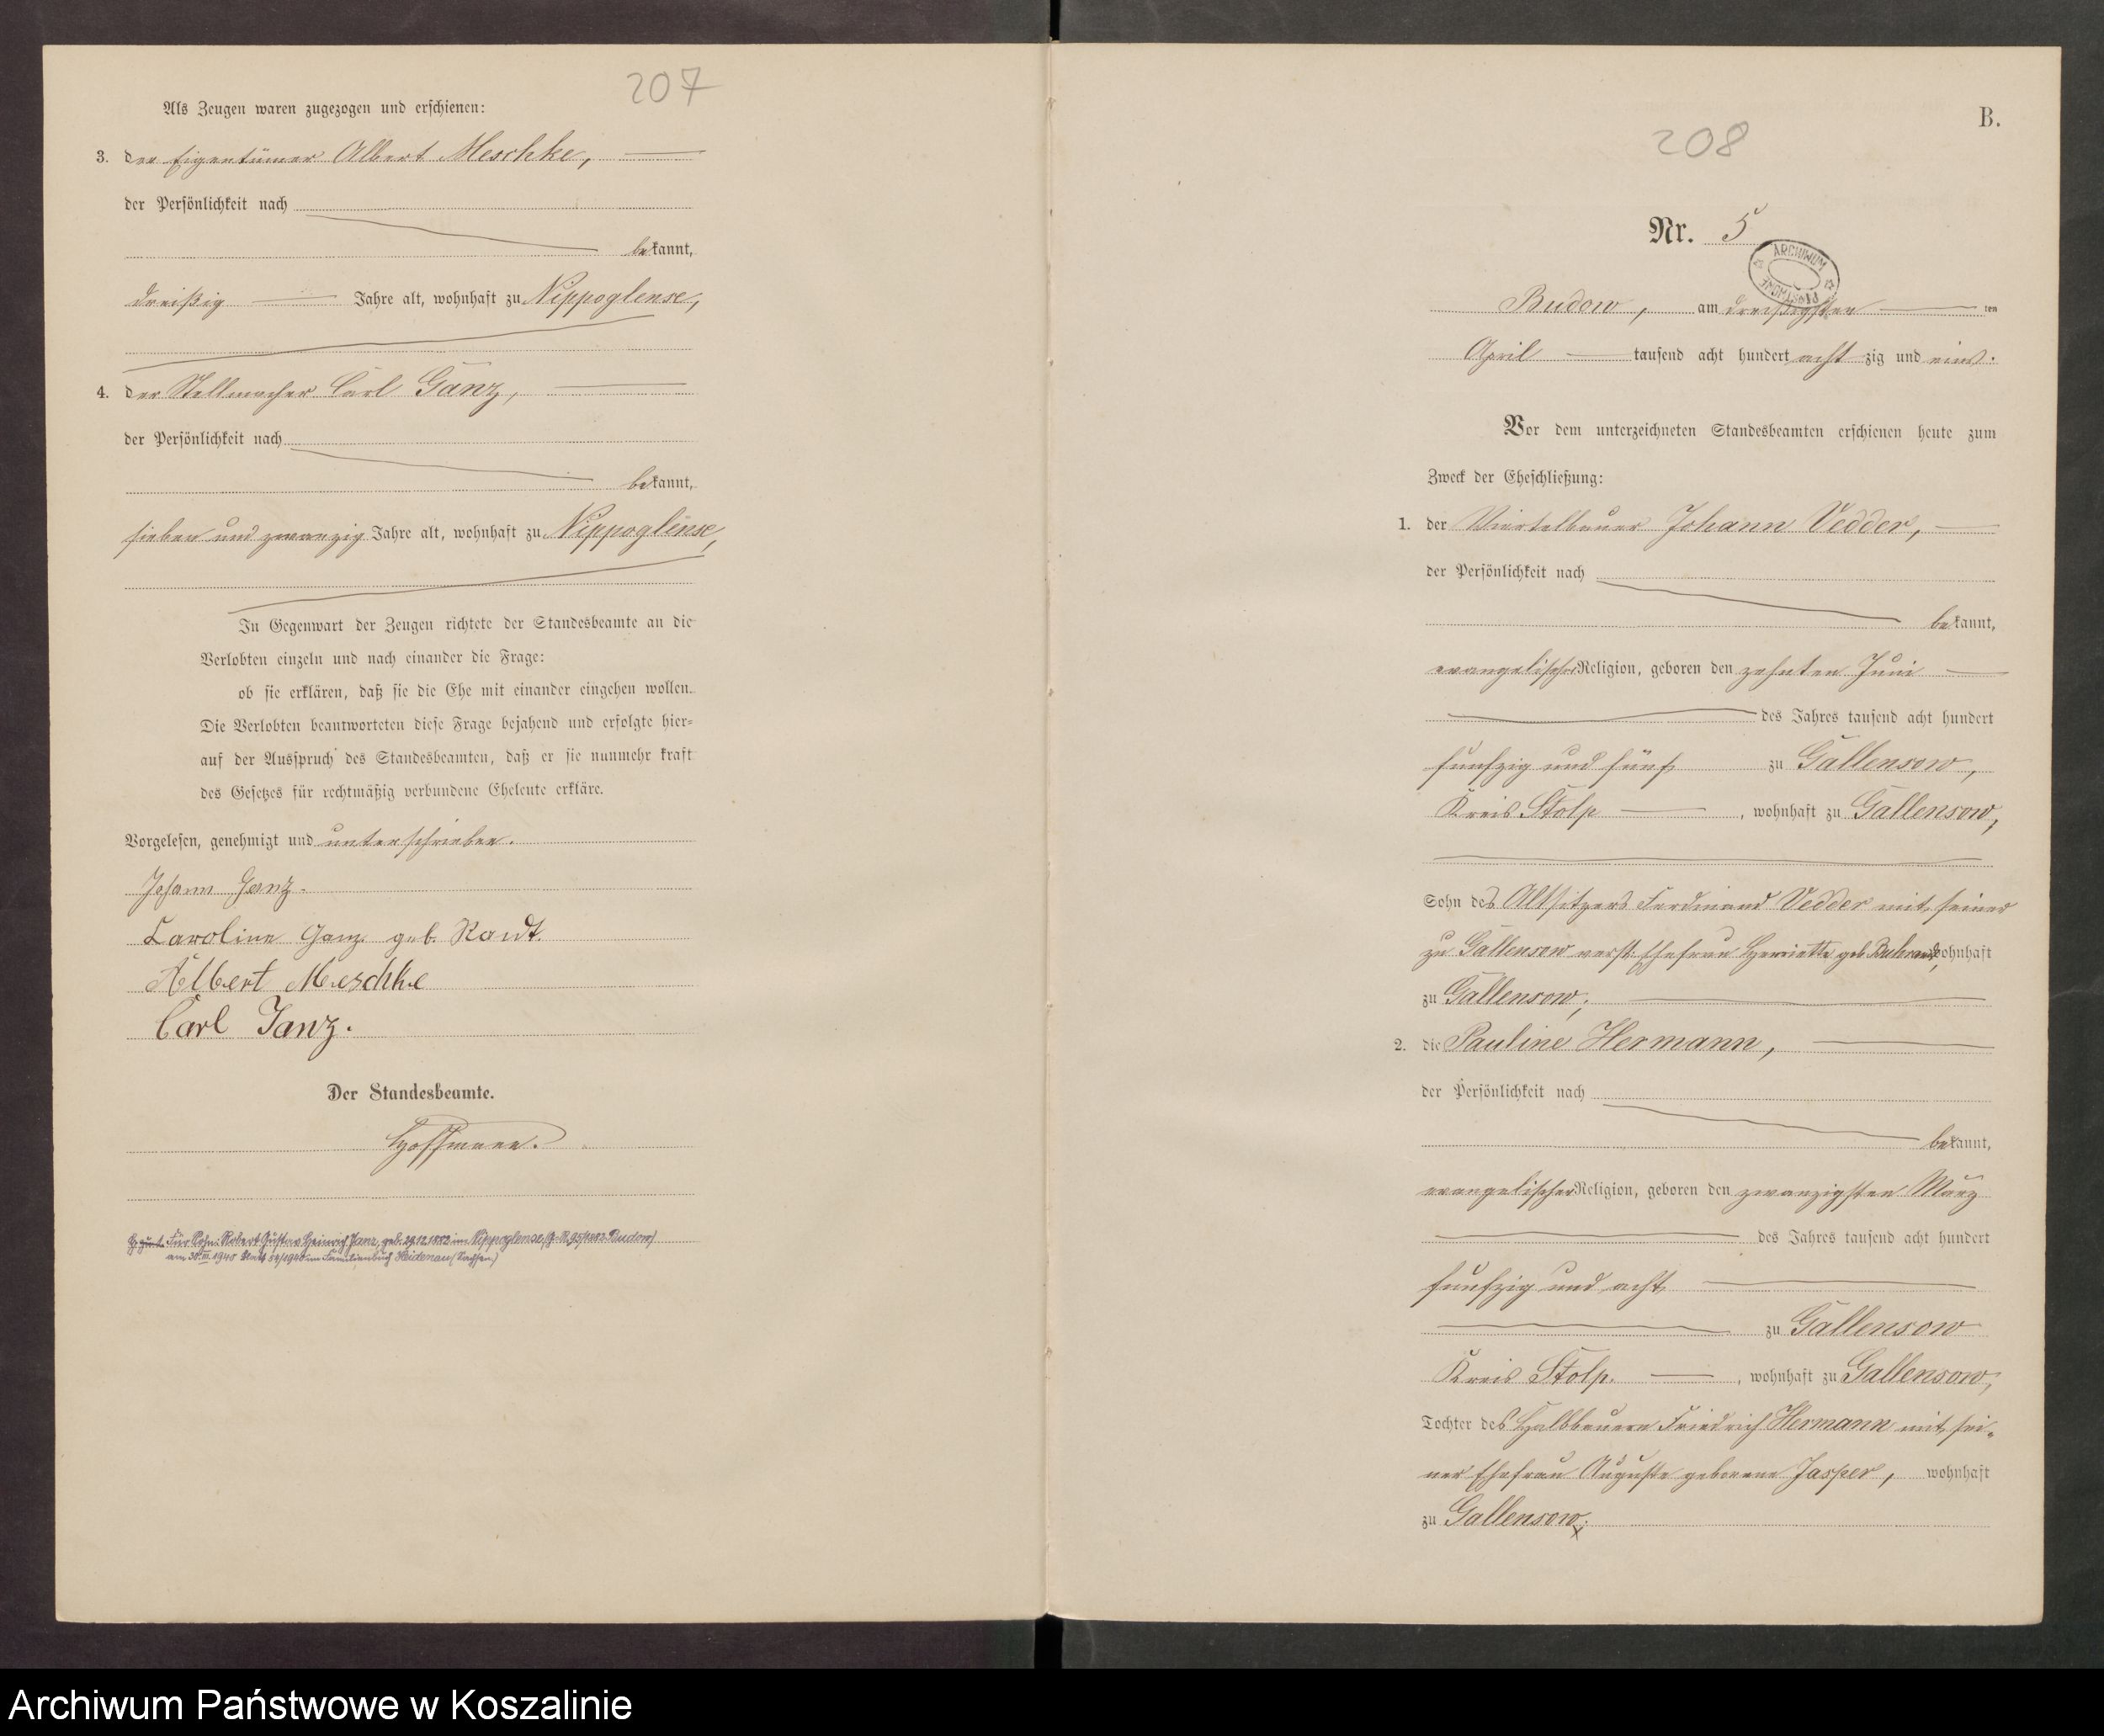 207
Als Zeugen waren zugezogen und erschienen:
3. der Eigentümer Albert Meschke,
der Persönlichkeit nach
bekannt,
dreißig Jahre alt, wohnhaft zu Nippoglense,
4. der Stellmacher Carl Ganz,
der Persönlichkeit nach
bekannt,
sieben und zwanzig Jahre alt, wohnhaft zu Nippoglense,
In Gegenwart der Zeugen richtete der Standesbeamte an die
Verlobten einzeln und nach einander die Frage:
ob sie erklären, daß sie die Ehe mit einander eingehen wollen.
Die Verlobten beantworteten diese Frage bejahend und erfolgte hier-
auf der Ausspruch des Standesbeamten, daß er sie nunmehr kraft
des Gesetzes für rechtmäßig verbundene Eheleute erkläre.
Vorgelesen, genehmigt und unterschrieben.
Johann Ganz.
Caroline Ganz geb. Raudt.
Albert Meschke
Carl Janz.
Der Standesbeamte.
Hoffmann.
Für Sohn: Robert Gustav Heinrich Janz, geb. 29.12.1882 in Nippoglense Budow)
am 30. III. 1940 im Familienbuch Heidenau (Sachsen)
B.
208
Nr. 5
ARCHIWUM PAŃSTWOWE
Budow, am dreißigsten ten
April tausend acht hundert acht zig und eins.
Vor dem unterzeichneten Standesbeamten erschienen heute zum
Zweck der Eheschließung:
1. der Viertelbauer Johann Vedder,
der Persönlichkeit nach
bekannt,
evangelischer Religion, geboren den zehnten Juni
des Jahres tausend acht hundert
funfzig und fünf zu Gallensow,
Kreis Stolp, wohnhaft zu Gallensow,
Sohn des Altsitzers Ferdinand Vedder mit seiner
zu Gallensow verst. Ehefrau Henriette geb. wohnhaft
zu Gallensow;
2. die Pauline Hermann,
der Persönlichkeit nach
bekannt,
evangelischer Religion, geboren den zwanzigsten März
des Jahres tausend acht hundert
funfzig und acht
zu Gallensow
Kreis Stolp., wohnhaft zu Gallensow,
Tochter des Halbbauern Friedrich Hermann mit sei-
ner Ehefrau Auguste geborene Jasper, wohnhaft
zu Gallensow.
Archiwum Państwowe w Koszalinie